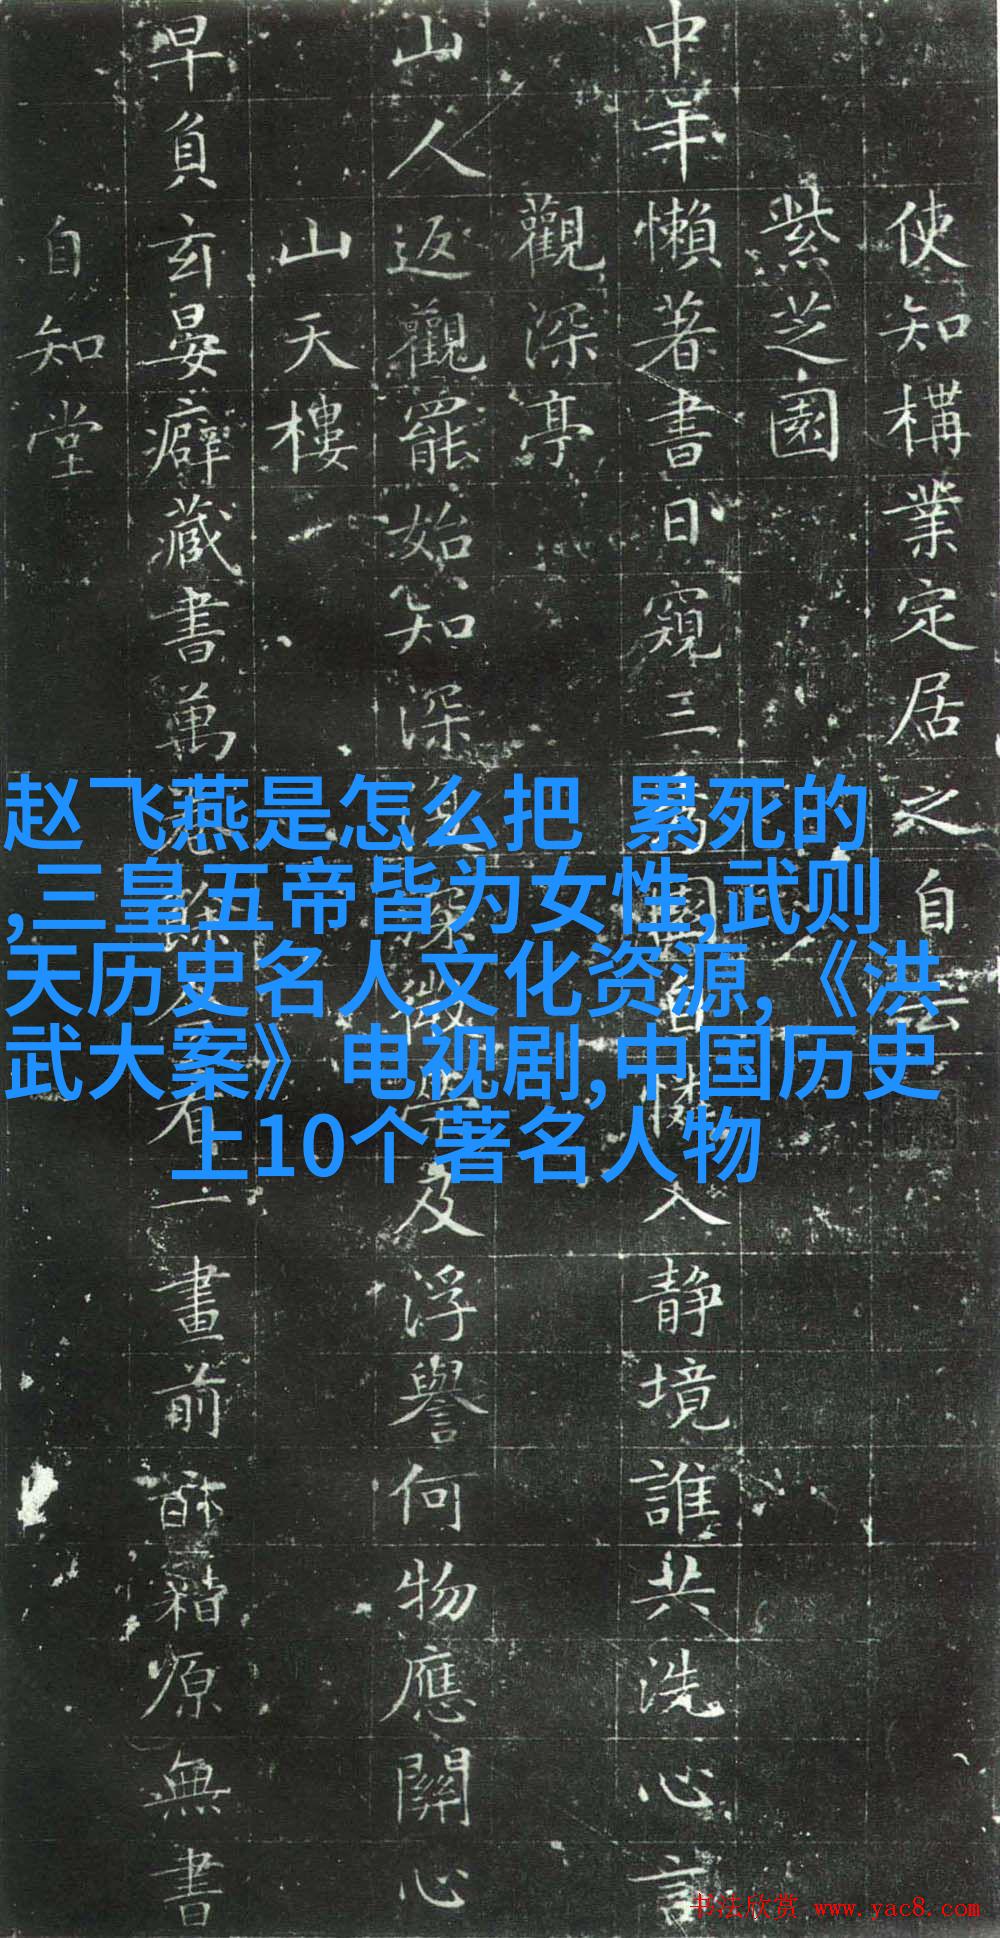 使知構業定居之自云
紫芝園
中年懶著書日窺三園自入靜境誰共洗心言
觀深亭
山人返觀罷始知深深微學及浮譽何物應關心
山天樓
早負玄晏癖藏書萬餘看一畫前籍原無書
自知堂
赵飞燕是怎么把 累死的
,三皇五帝皆为女性,武则
天历史名人文化资源,《洪
武大案》电视剧,中国历史
上10个著名人物
书法欣赏 www.yac8.com